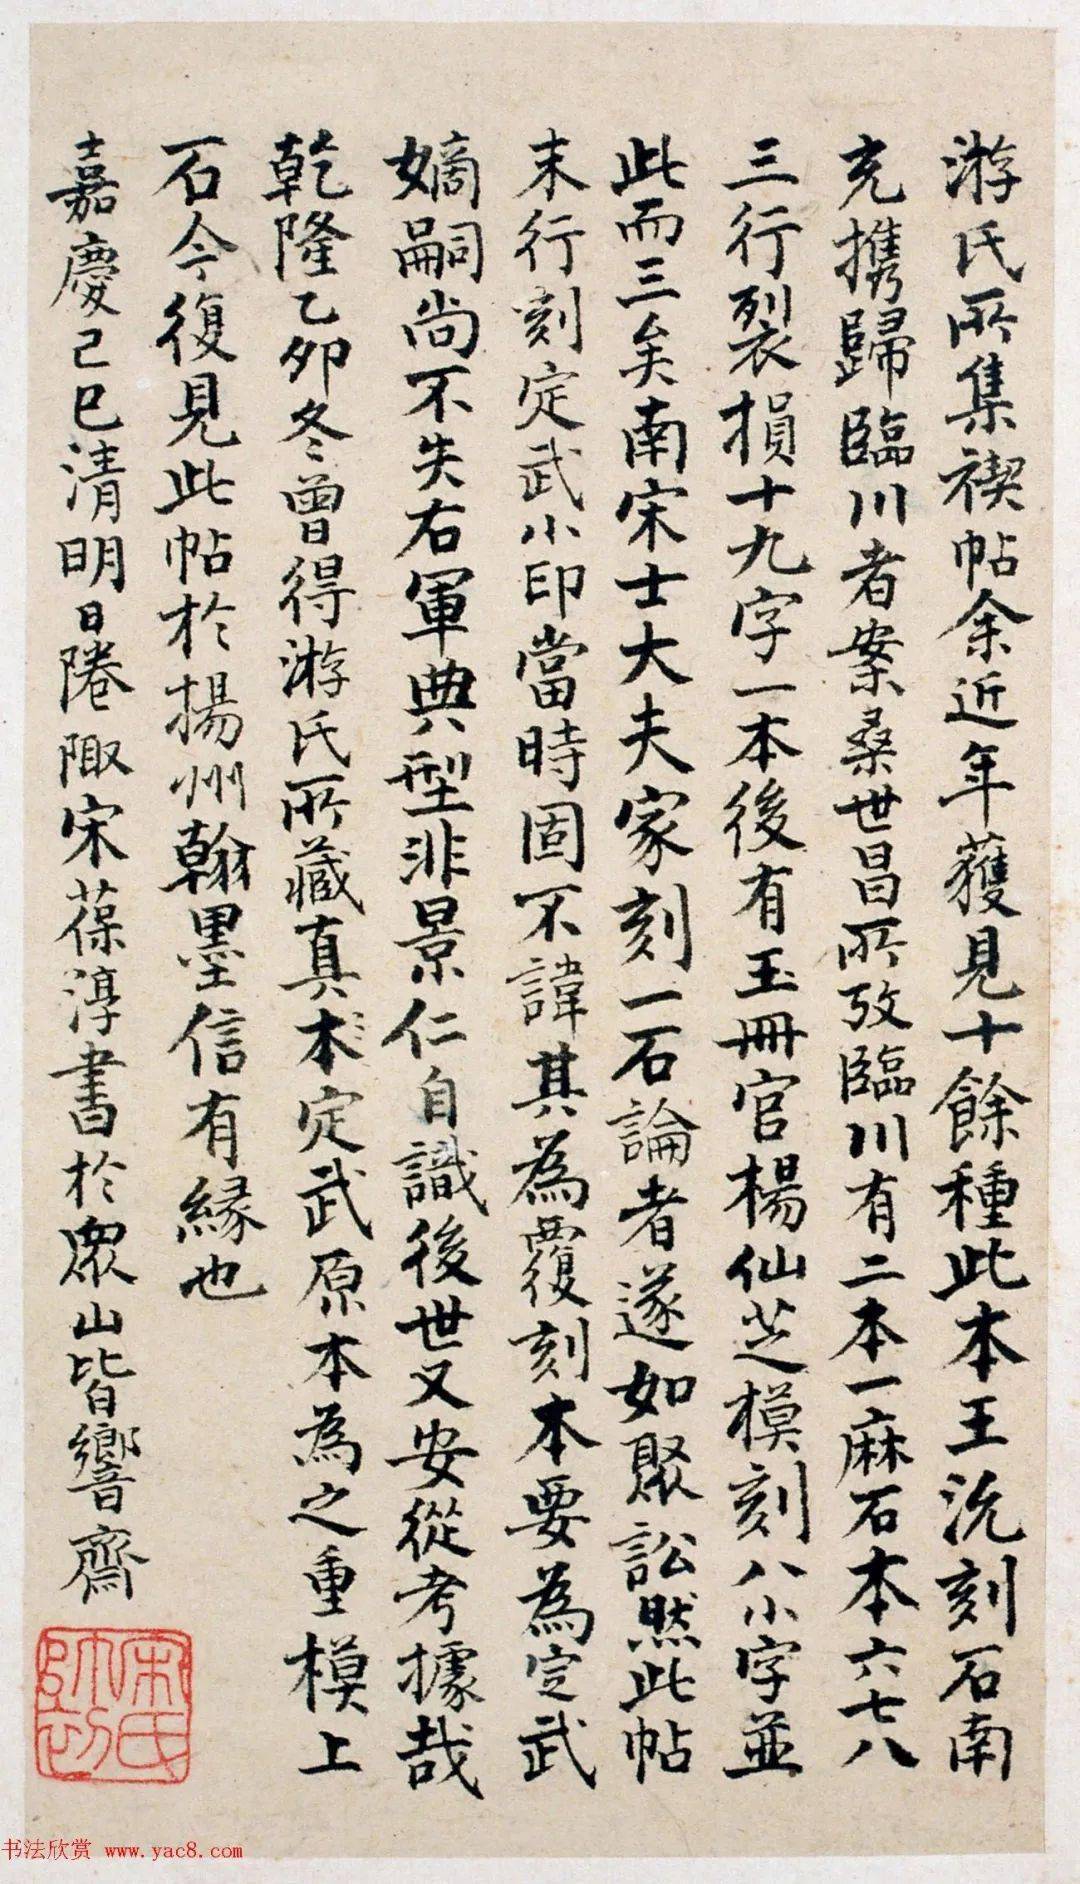 游氏所集禊帖余近年獲見十餘種此本王沇刻石南
充携歸臨川者案桑世昌所攷臨川有二本一麻石本六七八
三行裂損十九字一本後有玉冊官楊仙芝模刻八小字並
此而三矣南宋士大夫家刻一石論者遂如聚訟然此帖
末行刻定武小印當時固不諱其為覆刻本要為定武
嫡嗣尚不失右軍典型非景仁自識後世又安從考據哉
乾隆乙卯冬曾得游氏所藏真本定武原本為之重模上
石今復見此帖於揚州翰墨信有緣也
嘉慶己巳清明日陭陬宋葆淳書於眾山皆響齋
宋氏帥初
书法欣赏 www.yac8.com